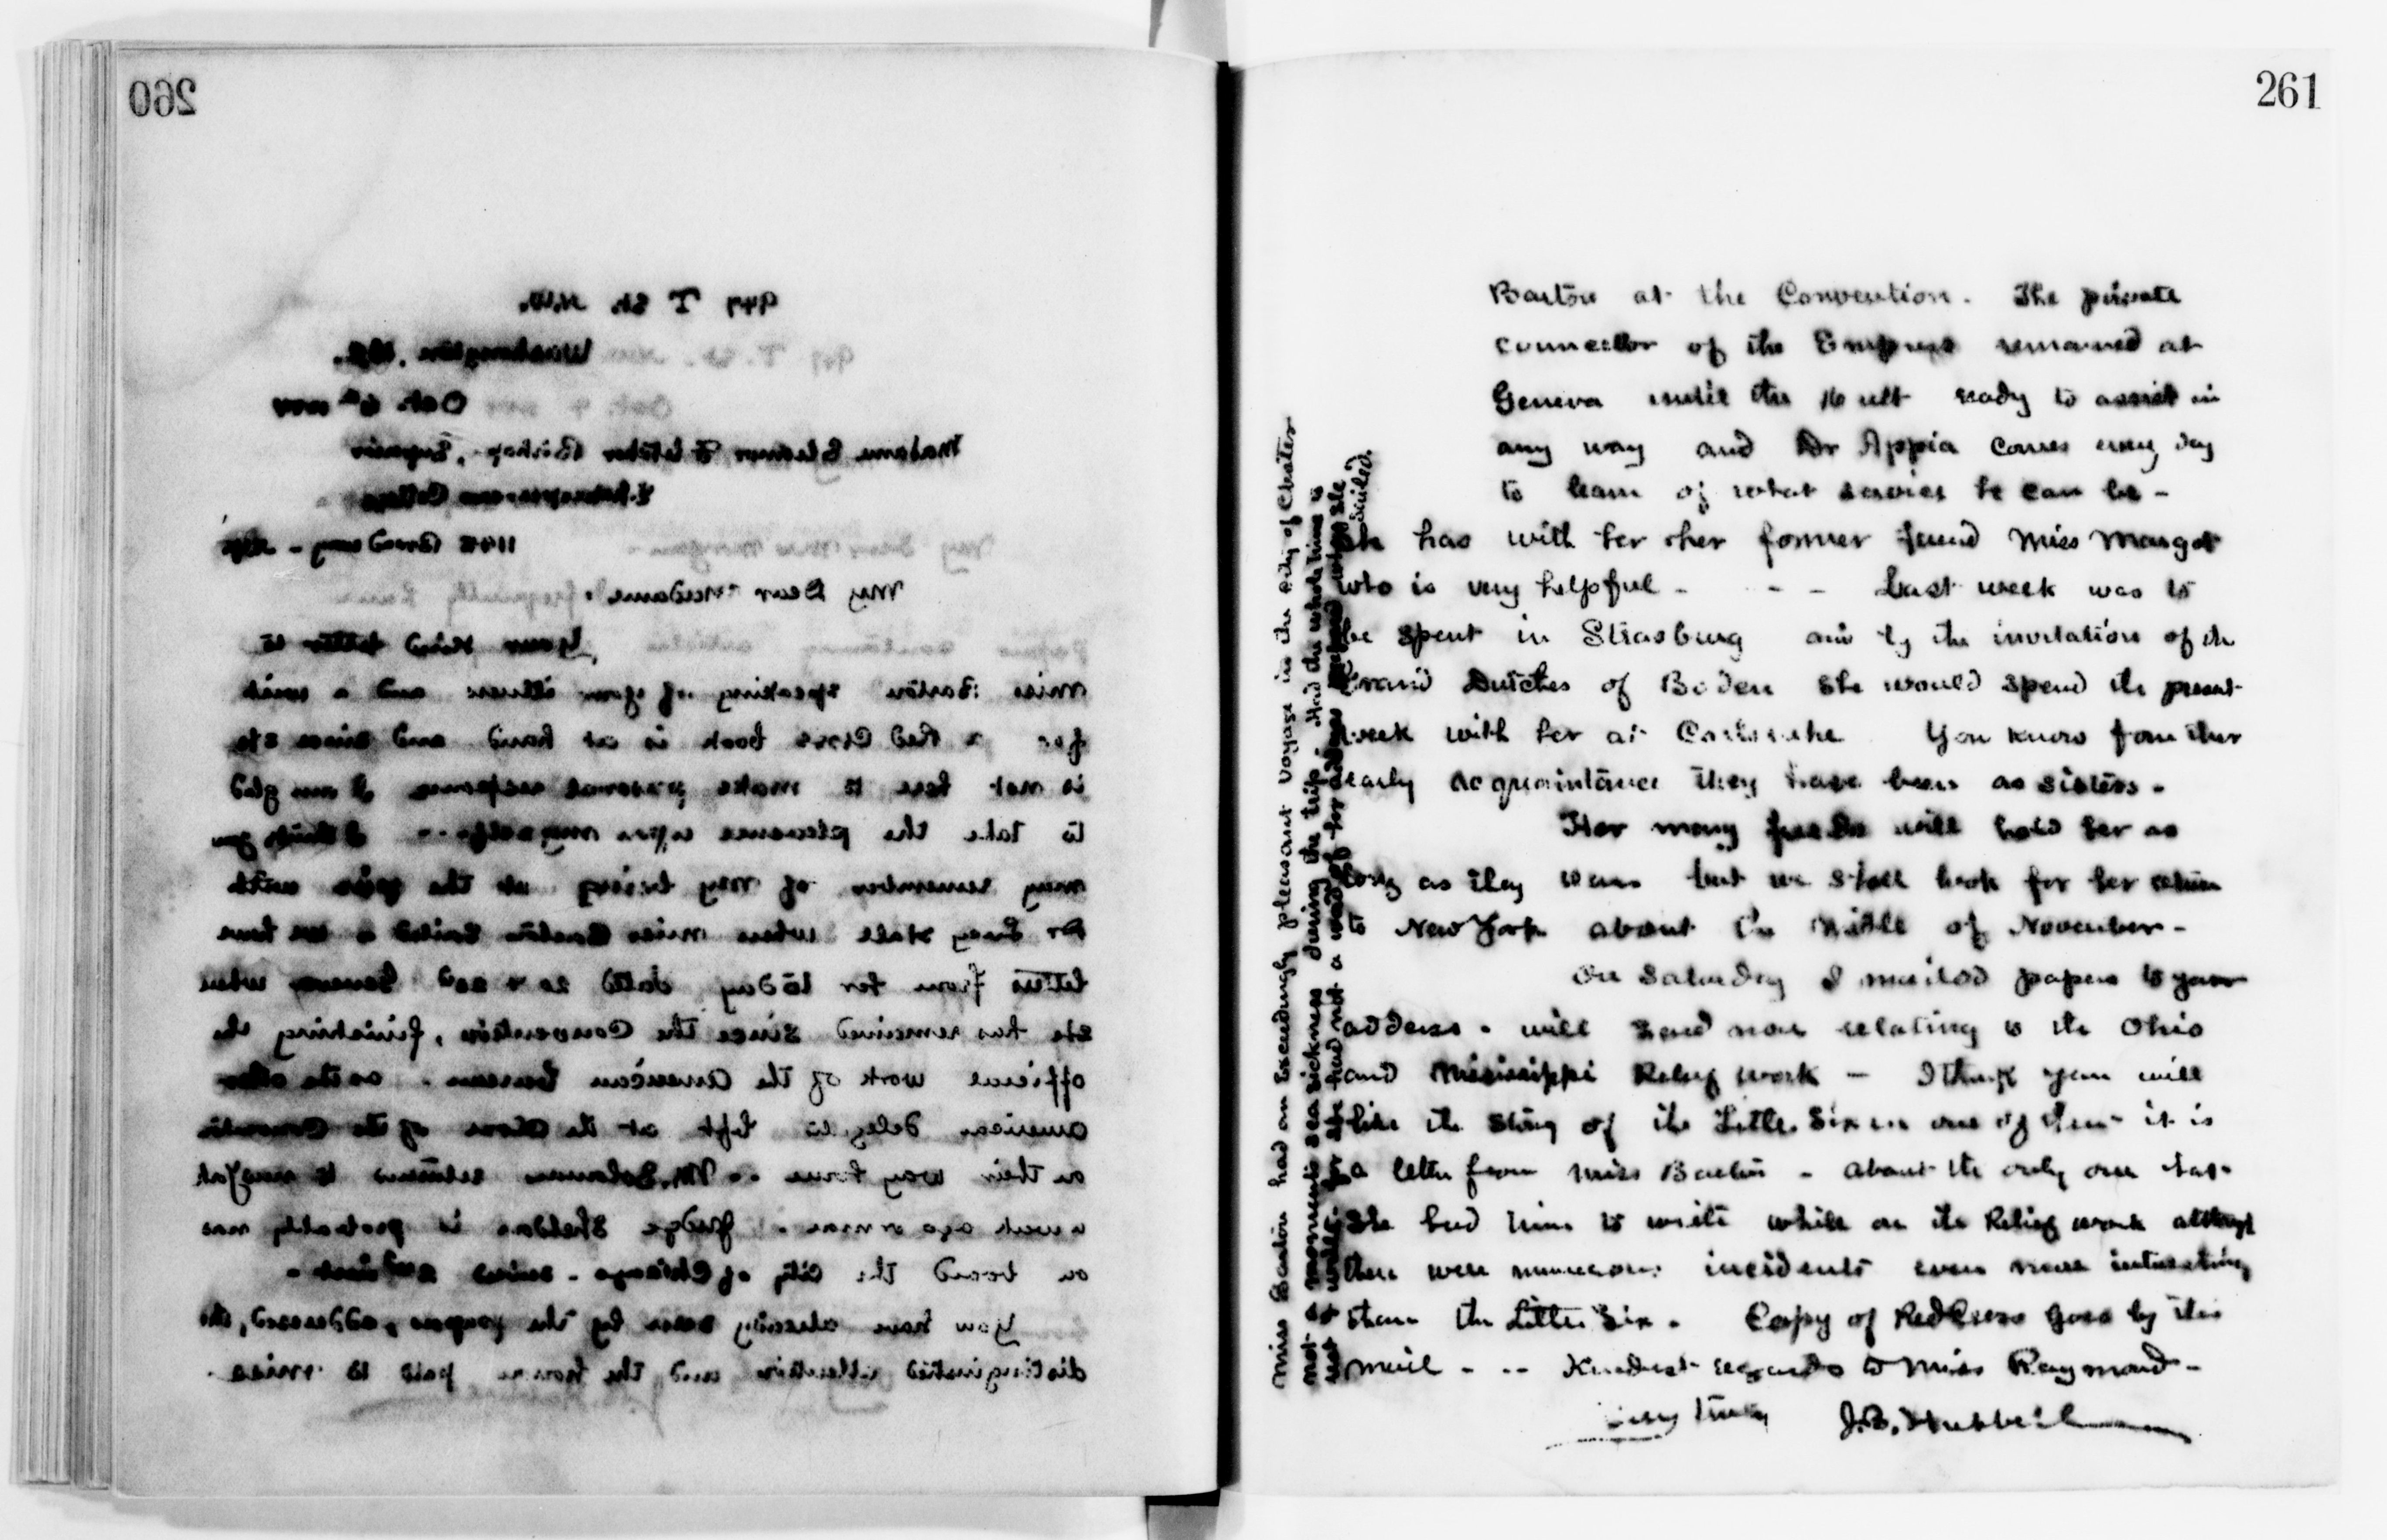 260
947 T St. N.W.
Washington, D.C.
Oct. 6th
Madame Eleanor Fletcher Bishop, Superior
College
1145 Broadway -
My Dear Madame.
Your kind letter to
Miss Barton speaking of your illness and a wish
for a Red Cross book is at hand and since she
is not here to make personal response I am glad
to take the pleasure upon myself - I think you
may remember of my being at the pier with
Dr Lucy Hall when Miss Barton sailed - we have
letters from her today dated 20 & 22d Geneva when
she has remained since the Convention, finishing the
official work of the American bureau. as the other
american delegates left at the close of the Convention
on their way home - Mr. Solomons returned to New York
a week ago or more. Judge Sheldon is probably now
on board the City of Chicago - sailed
You have already seen by the papers, addressed, the
distinguished attention and the honors paid to Miss
261
Barton at the Convention. The private
councellor of the Empress remained at
Geneva until the 16 ult ready to assist in
any way and Dr Appia comes every day
to learn of what service he can be -
She has with her her former friend Miss Margot
who is very helpful - - - Last week was to
be spent in Strasburg and by the invitation of the
Grand Dutches of Baden she would spend the present
week with her at Carlsruhe You know from their
early acquaintance they have been as sisters -
Her many friends will hold her as
long as they can but we shall look for her return
to New York about the Middle of November -
On Saturday I mailed papers to your
address - will send more relating to the Ohio
and Mississippi Relief work - I think you will
like the story of the Little Six in one of them - it is
a letter from Miss Barton - about the only one that
she had time to write while on the Relief work although
there were numerous incidents even more interesting
than the Little Six - Copy of Red Cross goes by this
mail - -- Kindest regards to Miss Raymond -
Very truly J.B. Hubbell
Miss Barton had an Exceedingly pleasant voyage in the City of Chester
not a moments sea sickness during the trip - Had the whole time to
sailed.